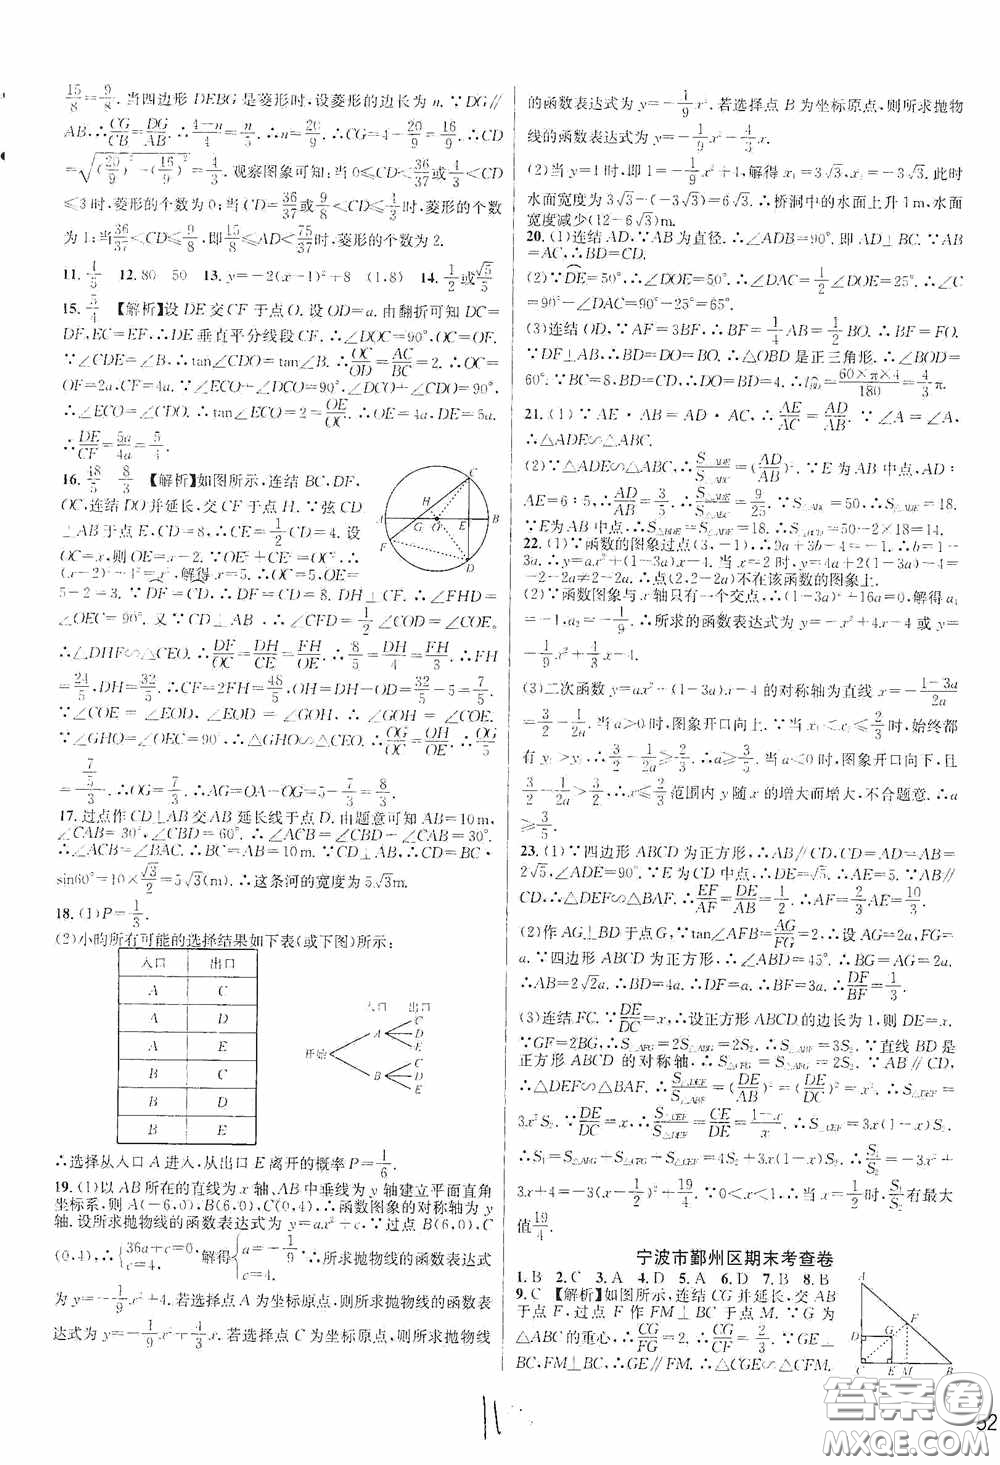 15/8=9/8. 当四边形 DEBG 是菱形时,设菱形的边长为 n. ∵DG∥
AB,∴CG/CB=DG/AB. ∴(4-n)/4=n/5. ∴n=20/9. ∴CG=4-20/9=16/9. ∴CD
=√((20/9)²-(16/9)²)=4/3. 观察图象可知:当 0≤CD<36/37或4/3<CD
≤3时,菱形的个数为 0;当 CD=36/37或9/8<CD≤4/3时,菱形的个数
为 1;当36/37<CD≤9/8,即5/8≤AD<75/37时,菱形的个数为 2.
11. 4/5 12. 80 50 13. y=-2(x-1)²+8 (1,8) 14. 1/2或√5/5
15. 5/4 【解析】设 DE 交 CF 于点 O. 设 OD=a. 由翻折可知 DC=
DF,EC=EF,∴DE 垂直平分线段 CF. ∴∠DOC=90°,OC=OF.
∵∠CDE=∠B. ∴tan∠CDO=tan∠B. ∴OC/OD=AC/BC=2. ∴OC=
OF=2a,CF=4a. ∵∠ECO+∠DCO=90°,∠CDO+∠DCO=90°,
∴∠ECO=∠CDO. ∴tan∠ECO=2=OE/OC. ∴OE=4a. ∴DE=5a.
∴DE/CF=5a/4a=5/4.
16. 48/5 8/3 【解析】如图所示,连结 BC,DF,
OC,连结 DO 并延长,交 CF 于点 H. ∵弦 CD
⊥AB 于点 E,CD=8,∴CE=1/2CD=4. 设 OC
=x,则 OE=x-2. ∵OE²+CE²=OC²,∴
(x-2)²+4²=x²,解得 x=5. ∴OE=
5-2=3. ∵DF=DC,∴DF=CD=8. DH⊥CF. ∴∠FHD=
∠OEC=90°. 又∵CD⊥AB,∴∠CFD=1/2∠COD=∠COE,
∴∠DHF∽△CEO. ∴DF/OC=DH/CE=FH/OE. ∴8/5=DH/4=FH/3. ∴FH=
24/5,DH=32/5. ∴CF=2FH=48/5,OH=DH-OD=32/5-5=7/5.
∵∠COE=∠EOD,∠EOD=∠GOH,∴∠GOH=∠COE.
∵∠GHO=∠OEC=90°,∴△GHO∽△CEO. ∴OG/OC=OH/OE. ∴OG/5
=(7/5)/3. ∴OG=7/3. ∴AG=OA-OG=5-7/3=8/3.
17. 过点作 CD⊥AB 交 AB 延长线于点 D. 由题意可知 AB=10 m,
∠CAB=30°,∠CBD=60°. ∴∠ACB=∠CBD-∠CAB=30°.
∴∠ACB=∠BAC. ∴BC=AB=10 m. ∴在 Rt△BCD 中,CD=BC·
sin60°=10×√3/2=5√3(m). ∴这条河的宽度为 5√3 m.
18. (1)P=1/3.
(2)小昀所有可能的选择结果如下表(或下图)所示:
入口 出口
A C
A D
A E
B C
B D
B E
入口 出口
开始 A C D E
B C D E
∴选择从入口 A 进入,从出口 E 离开的概率 P=1/6.
19. (1)以 AB 所在的直线为 x 轴、AB 中垂线为 y 轴建立平面直角
坐标系,则 A(-6,0),B(6,0),C(0,4),∴函数图象的对称轴为 y
轴. 设所求抛物线的函数表达式为 y=ax²+c,∵过点 B(6,0),C
(0,4),∴{36a+c=0, c=4. 解得{a=-1/9, c=4. ∴所求抛物线的函数表达式
为 y=-1/9x²+4. 若选择点 A 为坐标原点,则所求抛物线的函数表
达式为 y=-1/9x²+4/3x. 若选择点 C 为坐标原点,则所求抛物线
的函数表达式为 y=-1/9x². 若选择点 B 为坐标原点,则所求抛物
线的函数表达式为 y=-1/9x²-4/3x.
(2)当 y=1 时,即 1=-1/9x²+4,解得 x₁=3√3,x₂=-3√3. 此时
水面宽度为 3√3-(-3√3)=6√3. ∴桥洞中的水面上升 1 m,水面
宽度减少(12-6√3)m.
20. (1)连结 AD,∵AB 为直径. ∴∠ADB=90°. 即 AD⊥BC. ∵AB=
AC,∴BD=CD.
(2)∵DE=50°,∴∠DOE=50°,∴∠DAC=1/2∠DOE=25°. ∴∠C
=90°-∠DAC=65°.
(3)连结 OD,∵AF=3BF. ∴BF=1/4AB=1/2BO. ∴BF=FO.
∵DF⊥AB,∴DO=BD=BO. ∴△OBD 是正三角形. ∴∠BOD=
60°. ∵BC=8,BD=CD,∴BD=BO=4. ∴l=60×π×4/180=4/3π.
21. (1)∵AE·AB=AD·AC,∴AE/AC=AD/AB. ∵∠A=∠A,
∴△ADE∽△ABC.
(2)∵△ADE∽△ABC,∴S△ADE/S△ABC=(AD/AB)². ∵E 为 AB 中点,AD:
AE=6:5,∴AD/AB=3/5. ∴S△ADE/S△ABC=9/25. ∵S△ABC=50,∴S△ADE=18.
∵E 为 AB 中点,∴S△BDE=S△ADE=18. ∴S△BCD=50-2×18=14.
22. (1)∵函数的图象过点(3,-1),∴9a+3b-4=-1. ∴b=1-
3a. ∴函数表达式为 y=ax²+(1-3a)x-4. 当 x=2 时,y=4a+2(1-3a)-4=
-2-2a≠2-2a. ∴点(2,2-2a)不在该函数的图象上.
(2)∵函数图象与 x 轴只有一个交点,∴(1-3a)²+16a=0,解得 a₁
=-1,a₂=-1/9. ∴所求的函数表达式为 y=-x²+4x-4 或 y=
-1/9x²+4/3x-4.
(3)二次函数 y=ax²+(1-3a)x-4 的对称轴为直线 x=-(1-3a)/2a=
3/2-1/2a. 当 a>0 时,图象开口向上. ∵当 x₁<x₂≤2/3 时,始终都
有 y₁>y₂,∴3/2-1/2a≥2/3. ∴a≥3/5. 当 a<0 时,图象开口向下,
3/2-1/2a>3/2,∴x≤2/3 范围内 y 随 x 的增大而增大,不合题意. ∴a
≥3/5.
23. (1)∵四边形 ABCD 为正方形,∴AB∥CD,CD=AD=AB=
2√5,∠ADE=90°. ∵E 为 CD 中点,∴DE=√5,∴AE=5. ∵AB∥
CD,∴△DEF∽△BAF. ∴EF/AF=DE/AB=1/2. ∴AF=2EF. ∴AF=10/3.
(2)作 AG⊥BD 于点 G,∵tan∠AFB=AG/FG=2,∴设 AG=2a,FG=
a. ∵四边形 ABCD 为正方形,∴∠ABD=45°. ∴BG=AG=2a.
∴AB=2√2a. ∴BD=4a. ∴DF=a. ∴BF=3a. ∴DF/BF=1/3.
(3)连结 FC. ∵DE/DC=x,∴设正方形 ABCD 的边长为 1,则 DE=x.
∵GF=2BG,∴S△AFG=2S△ABG=2S₂. ∴S△ABF=3S₂. ∵直线 BD 是
正方形 ABCD 的对称轴,∴S△CFG=S△AFG=2S₂. ∵AB∥CD,
∴△DEF∽△BAF. ∴S△DEF/S△ABF=(DE/AB)²=(DE/DC)²=x². ∴S△DEF=
3x²S₂. ∵DE/DC=x,∴S△CEF/S△DEF=CE/DE=(1-x)/x. ∴S△CEF=3x(1-x)S₂.
∴S₁=S△CFG+S△CEF=2S₂+3x(1-x)S₂
3x+4=-3(x-1/2)²+19/4. ∴当 x=1/2 时,S₁/S₂ 有最大
值19/4.
宁波市鄞州区期末考查卷
1. B 2. C 3. A 4. D 5. A 6. D 7. B 8. B
9. C 【解析】如图所示,连结 CG 并延长,交 AB
于点 F,过点 F 作 FM⊥BC 于点 M. ∵G 为
△ABC 的重心,∴CG/FG=2. ∴CG/CF=2/3. ∵GE⊥
BC,FM⊥BC,∴GE∥FM. ∴△CGE∽△CFM.
11
52
答案圈
MXQE.COM